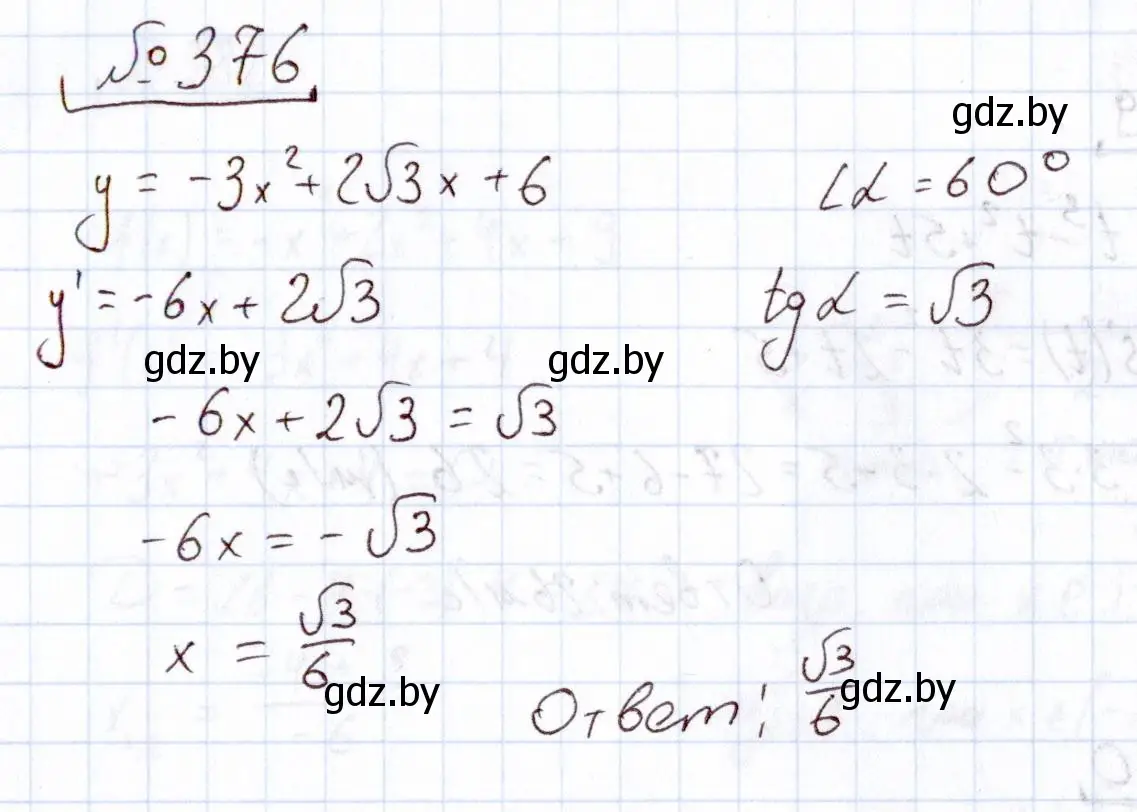 № 376
gdz.by
y = -3x² + 2√3x + 6
∠α = 60°
y' = -6x + 2√3
tgα = √3
gdz.by gdz.by
-6x + 2√3 = √3
-6x = -√3
x = √3/6
gdz.by
Ответ: √3/6
gdz.by